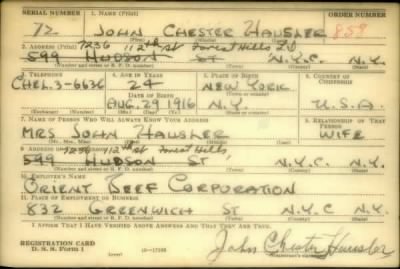 SERIAL NUMBER 1. NAME (Print) ORDER NUMBER
72 JOHN CHESTER HAUSLER 859
2. ADDRESS (Print) 7236 112th St Forest Hills L.I.
599 HUDSON ST N.Y.C. N.Y.
(Number and street or R. F. D. number) (Town) (County) (State)
3. TELEPHONE 4. AGE IN YEARS 5. PLACE OF BIRTH 6. COUNTRY OF CITIZENSHIP
CHEL. 3-6636 24 NEW YORK
DATE OF BIRTH
AUG. 29 1916 N.Y. U.S.A.
(Exchange) (Number) (Mo.) (Day) (Yr.) (State or country)
7. NAME OF PERSON WHO WILL ALWAYS KNOW YOUR ADDRESS 8. RELATIONSHIP OF THAT PERSON
MRS JOHN HAUSLER WIFE
(Mr., Mrs., Miss) (First) (Middle) (Last)
9. ADDRESS OF THAT PERSON 7236 112th St Forest Hills
599 HUDSON ST N.Y.C. N.Y.
(Number and street or R. F. D. number) (Town) (County) (State)
10. EMPLOYER'S NAME
ORIENT BEEF CORPORATION
11. PLACE OF EMPLOYMENT OR BUSINESS
832 GREENWICH ST N.Y.C N.Y.
(Number and street or R. F. D. number) (Town) (County) (State)
I AFFIRM THAT I HAVE VERIFIED ABOVE ANSWERS AND THAT THEY ARE TRUE.
REGISTRATION CARD
D. S. S. Form 1 (over) John Chester Hausler